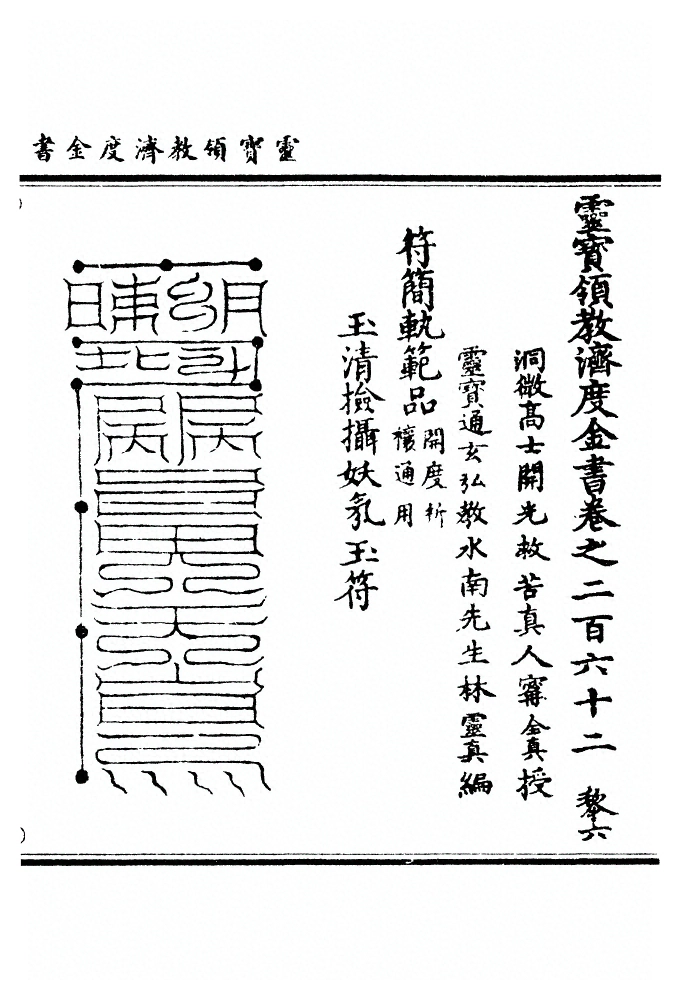 靈寶領教濟度金書
靈寶領教濟度金書卷之二百六十二 黎六
洞微高士開光救苦真人甯全真授
靈寶通玄弘教水南先生林靈真編
符簡軌範品 開度祈
禳通用
玉清撿攝妖氛玉符